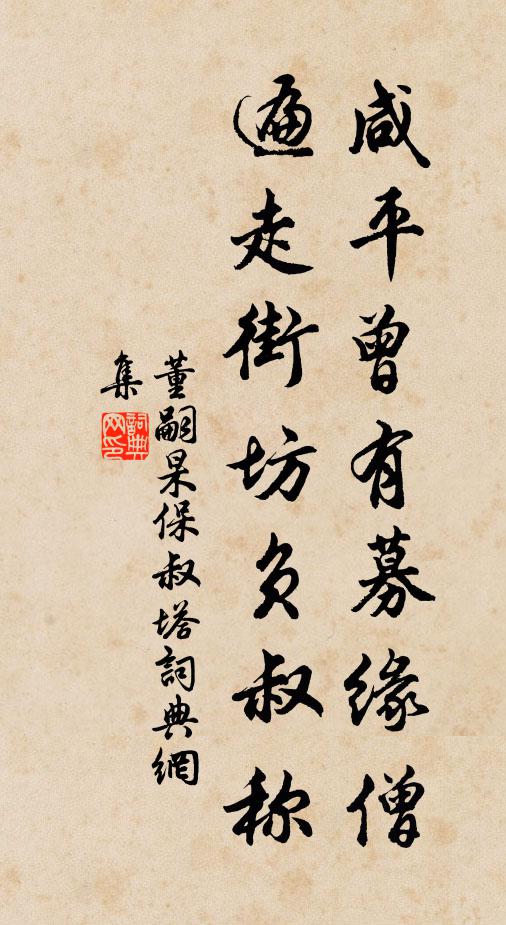 咸平曾有募缘僧
遍走街坊负叔称
董嗣杲保叔塔詞典網
集
詞典
网印